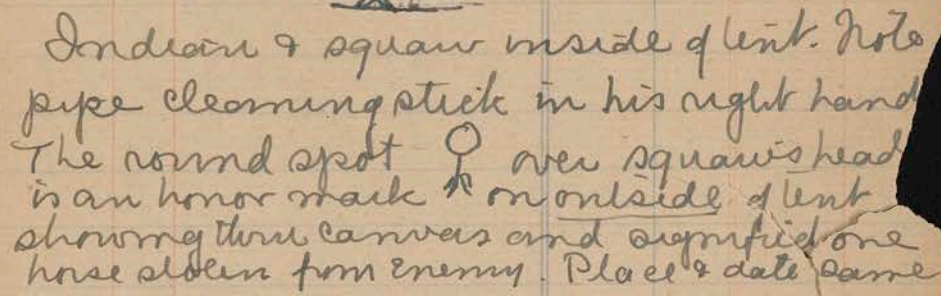 Indian & squaw inside of tent. Note
pipe cleaning stick in his right hand
The round spot over squaw's head
is an honor mark on outside of tent
showing thru canvas and signified one
horse stolen from Enemy. Place & date same